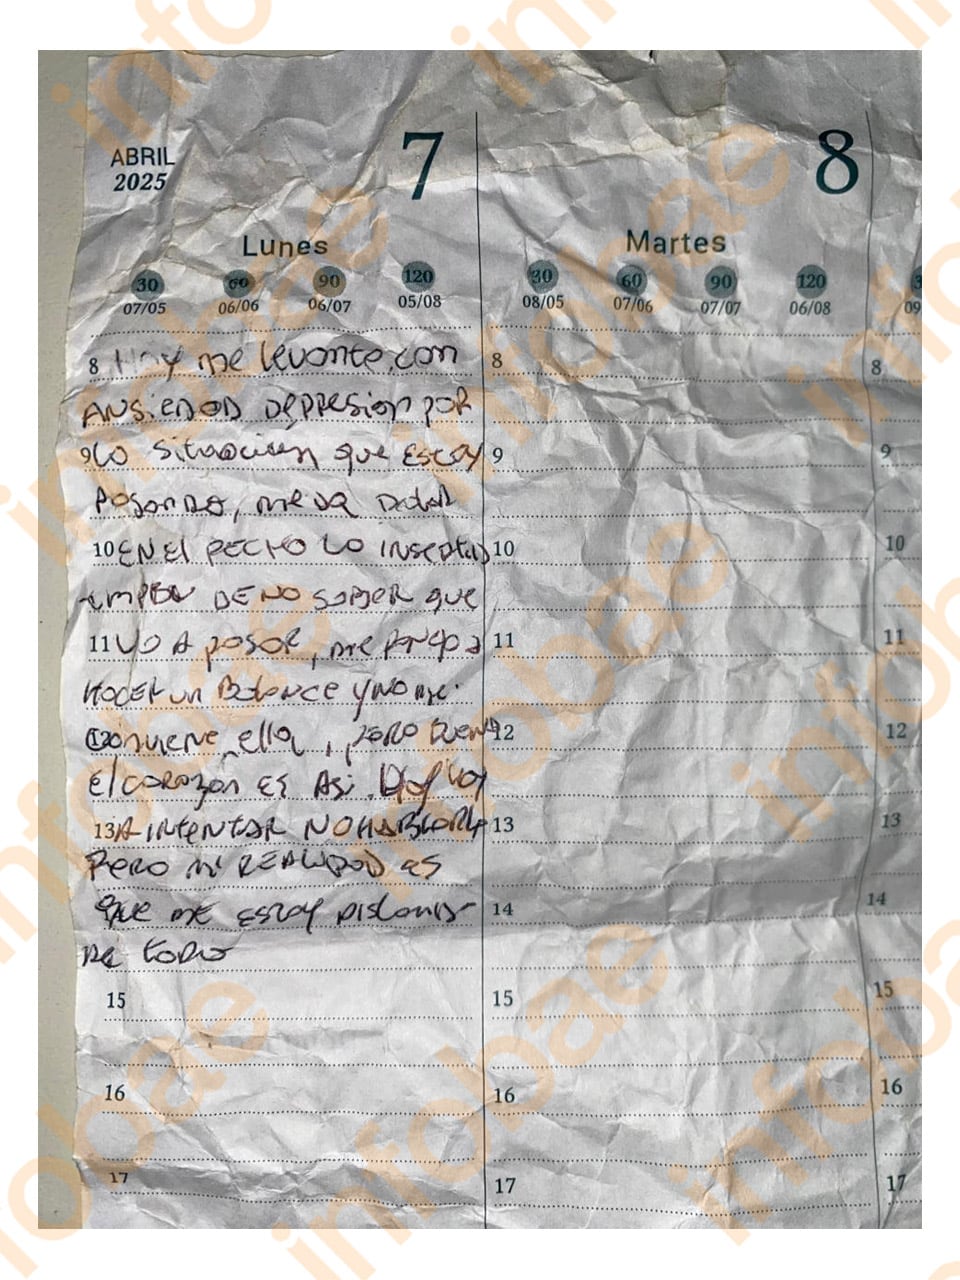 ABRIL
2025
7
8
Lunes
Martes
30 60 90 120 30 60 90 120
07/05 06/06 06/07 05/08 08/05 07/06 07/07 06/08 09
8 Hoy me levante, con 8 8
ANSIEDAD DEPRESION POR
9 LO situacion que ESTOY 9 9
POSANDO, me va
10 EN El PECHO LO 10 10
DE NO SABER que
11 VO A POSAR, me 11 11
HACER un Balance y NO me
12 conviene ella, PERO BUENO 12 12
El CORAZON ES ASi. Hoy voy
13 A INTENTAR NO HABLARLE 13 13
PERO mi REALIDAD es
que me ESTOY 14 14
DE TODO
15 15 15
16 16 16
17 17 17
infobae